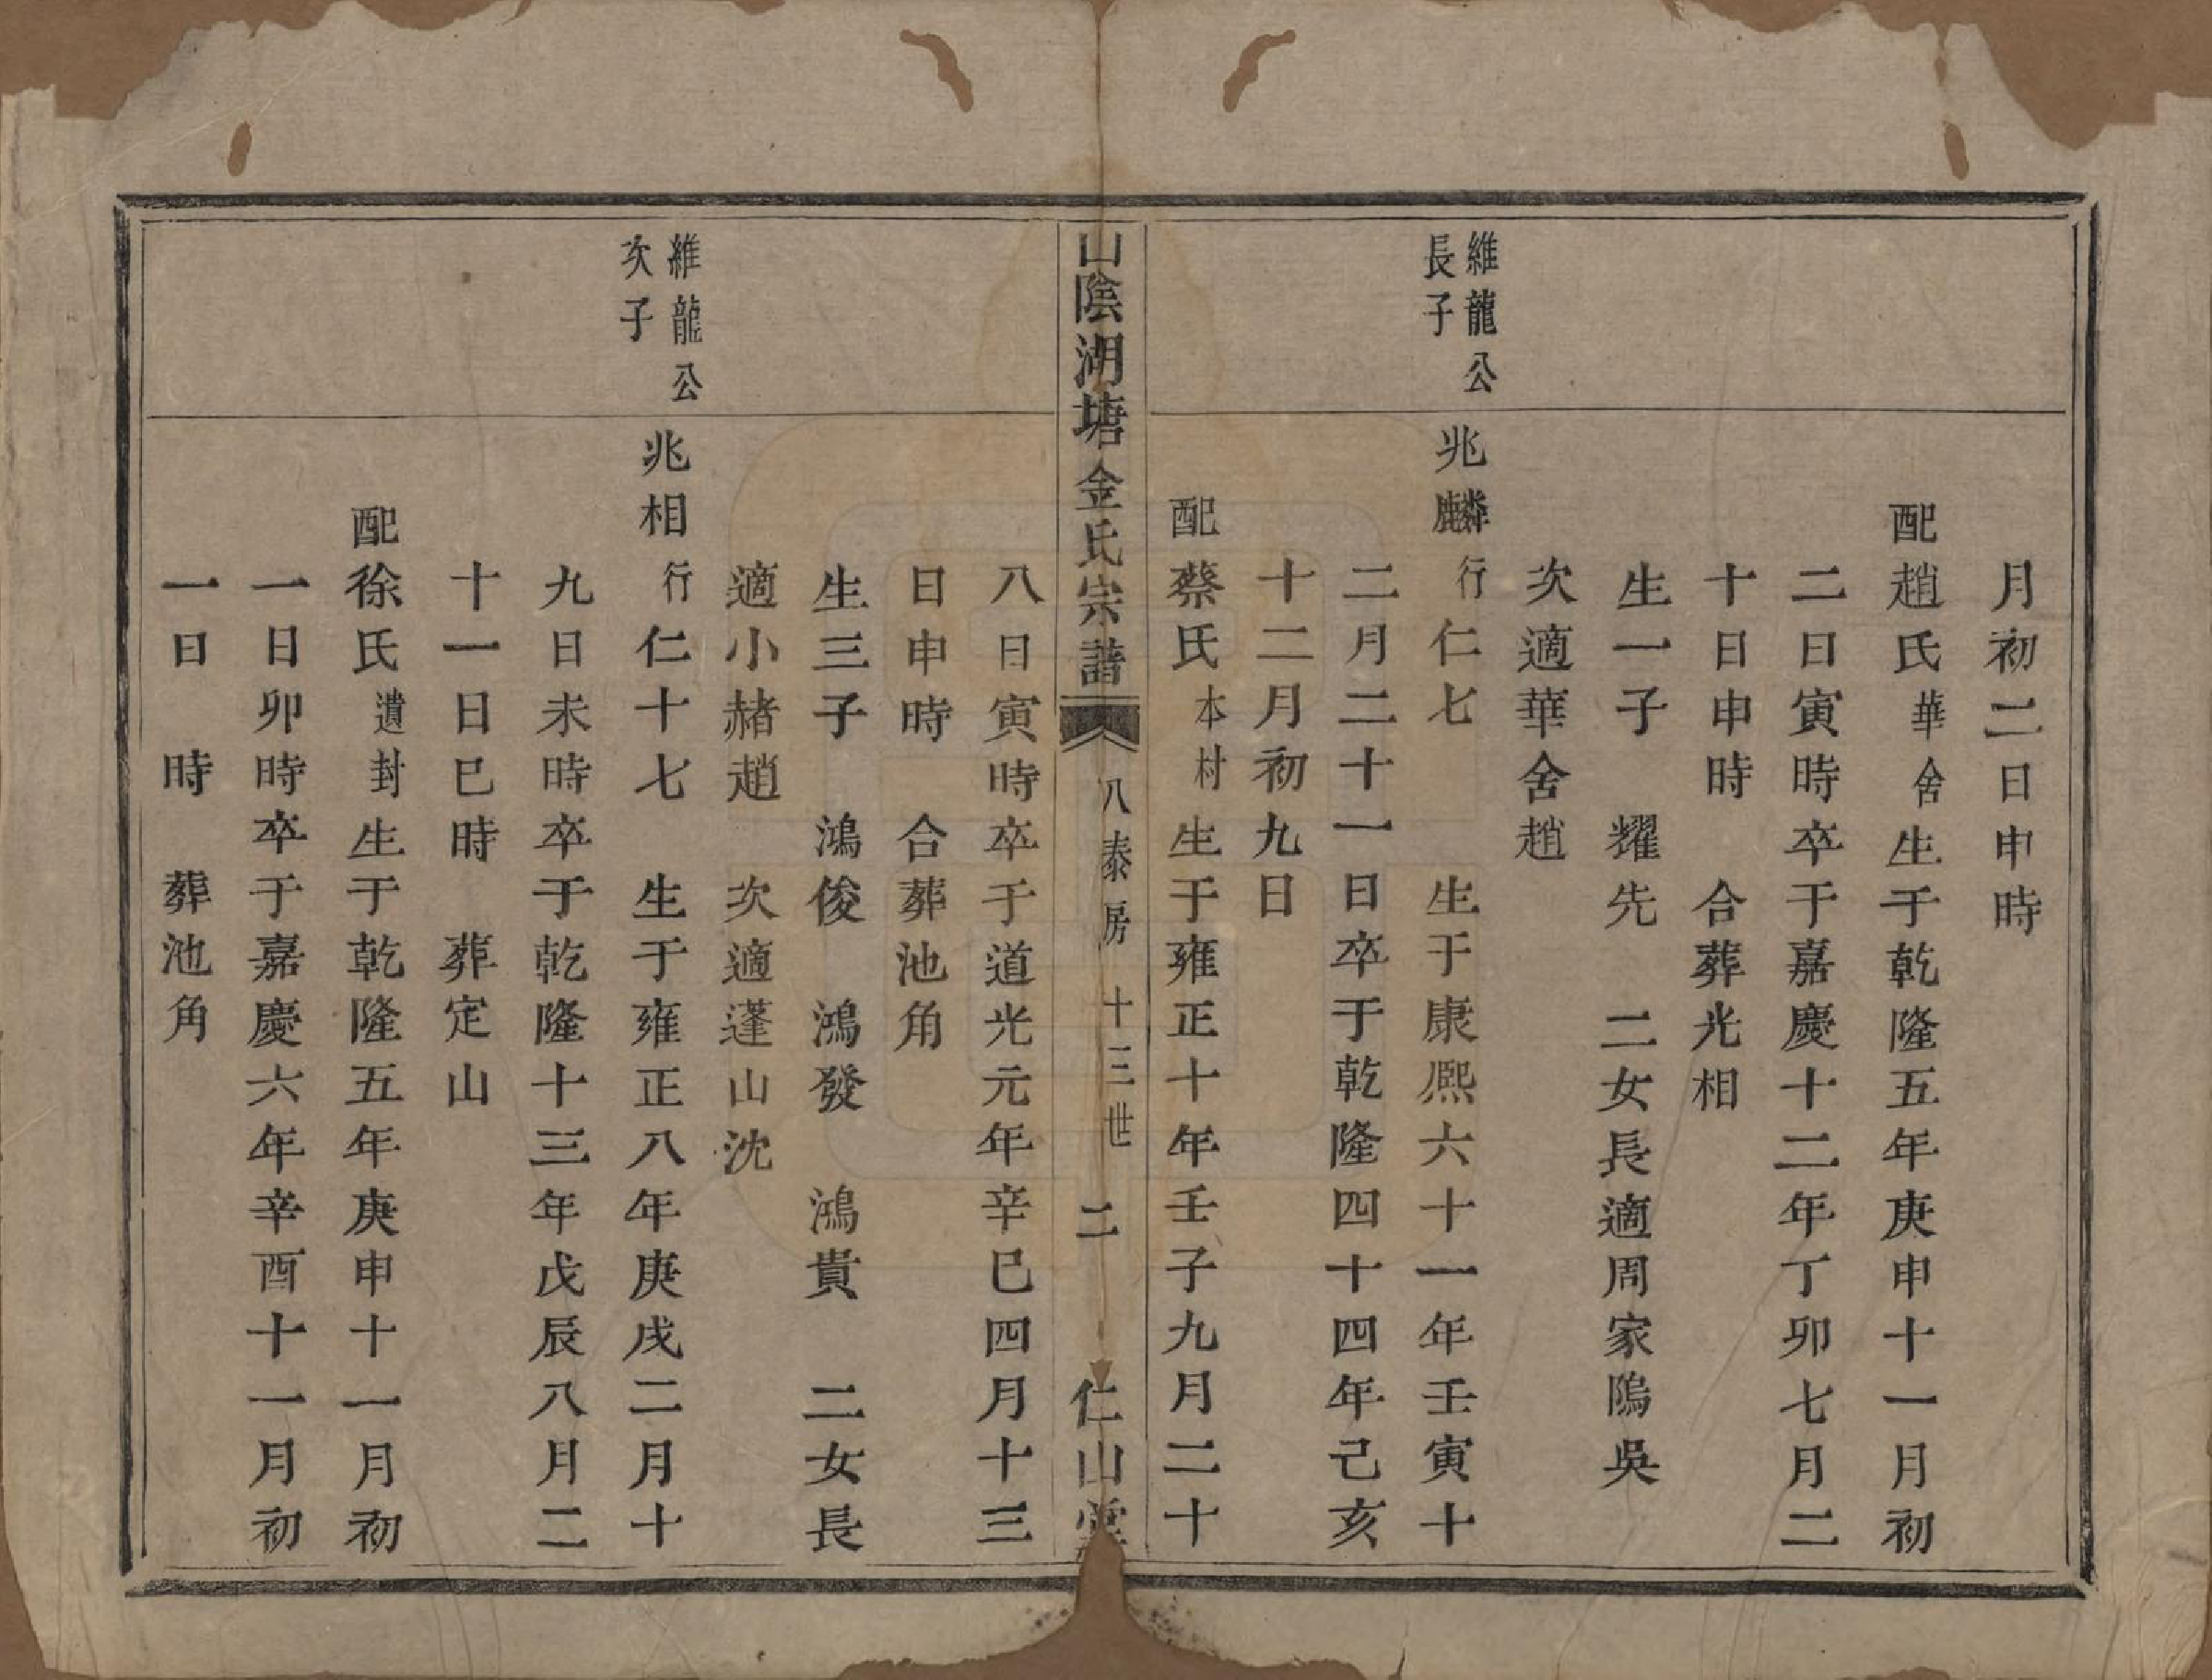 月初二日申時
配趙氏華舍生于乾隆五年庚申十一月初
二日寅時卒于嘉慶十二年丁卯七月二
十日申時　合葬光相
生一子　耀先　二女長適周家隖吳
次適華舍趙
維龍公長子
兆麟行仁七　生于康熈六十一年壬寅十
二月二十一日卒于乾隆四十四年己亥
十二月初九日
配蔡氏本村生于雍正十年壬子九月二十
山陰湖塘金氏宗譜　八泰房　十三世　二　仁山堂
八日寅時卒于道光元年辛巳四月十三
日申時　合葬池角
生三子　鴻俊　鴻發　鴻貴　二女長
適小赭趙　次適蓬山沈
維龍公次子
兆相行仁十七　生于雍正八年庚戌二月十
九日未時卒于乾隆十三年戊辰八月二
十一日巳時　葬定山
配徐氏遺封生于乾隆五年庚申十一月初
一日卯時卒于嘉慶六年辛酉十一月初
一日　時　葬池角